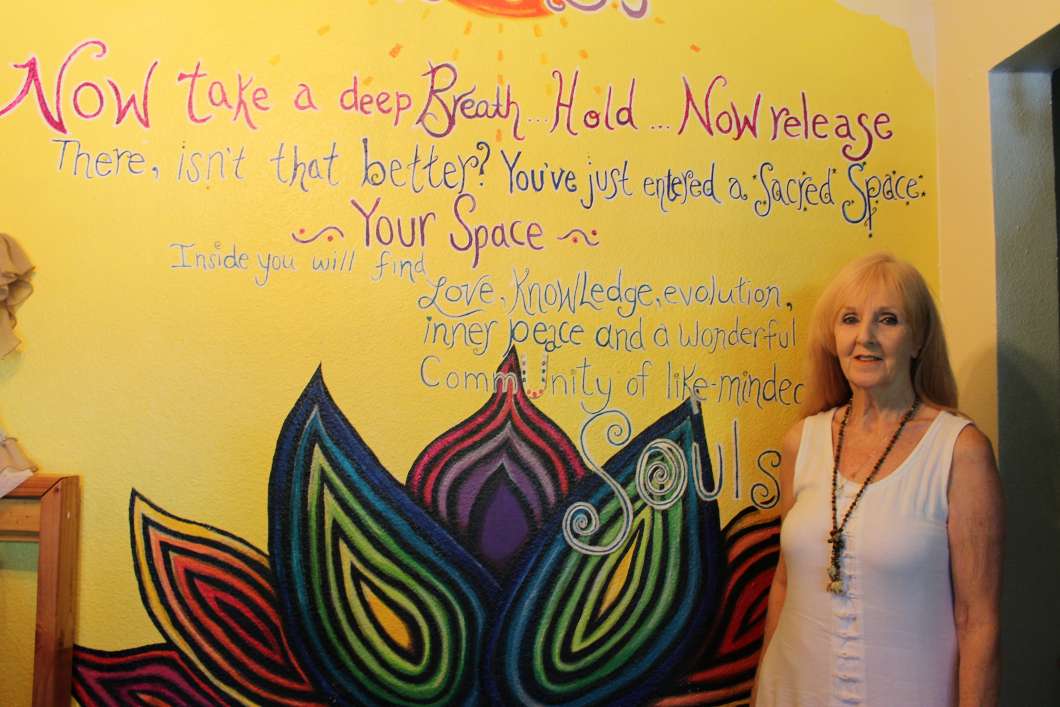 Now take a deep Breath... Hold... Now release
There, isn't that better? You've just entered a Sacred Space.
~ Your Space ~
Inside you will find
Love, Knowledge, evolution,
inner peace and a wonderful
CommUnity of like-minded
Souls